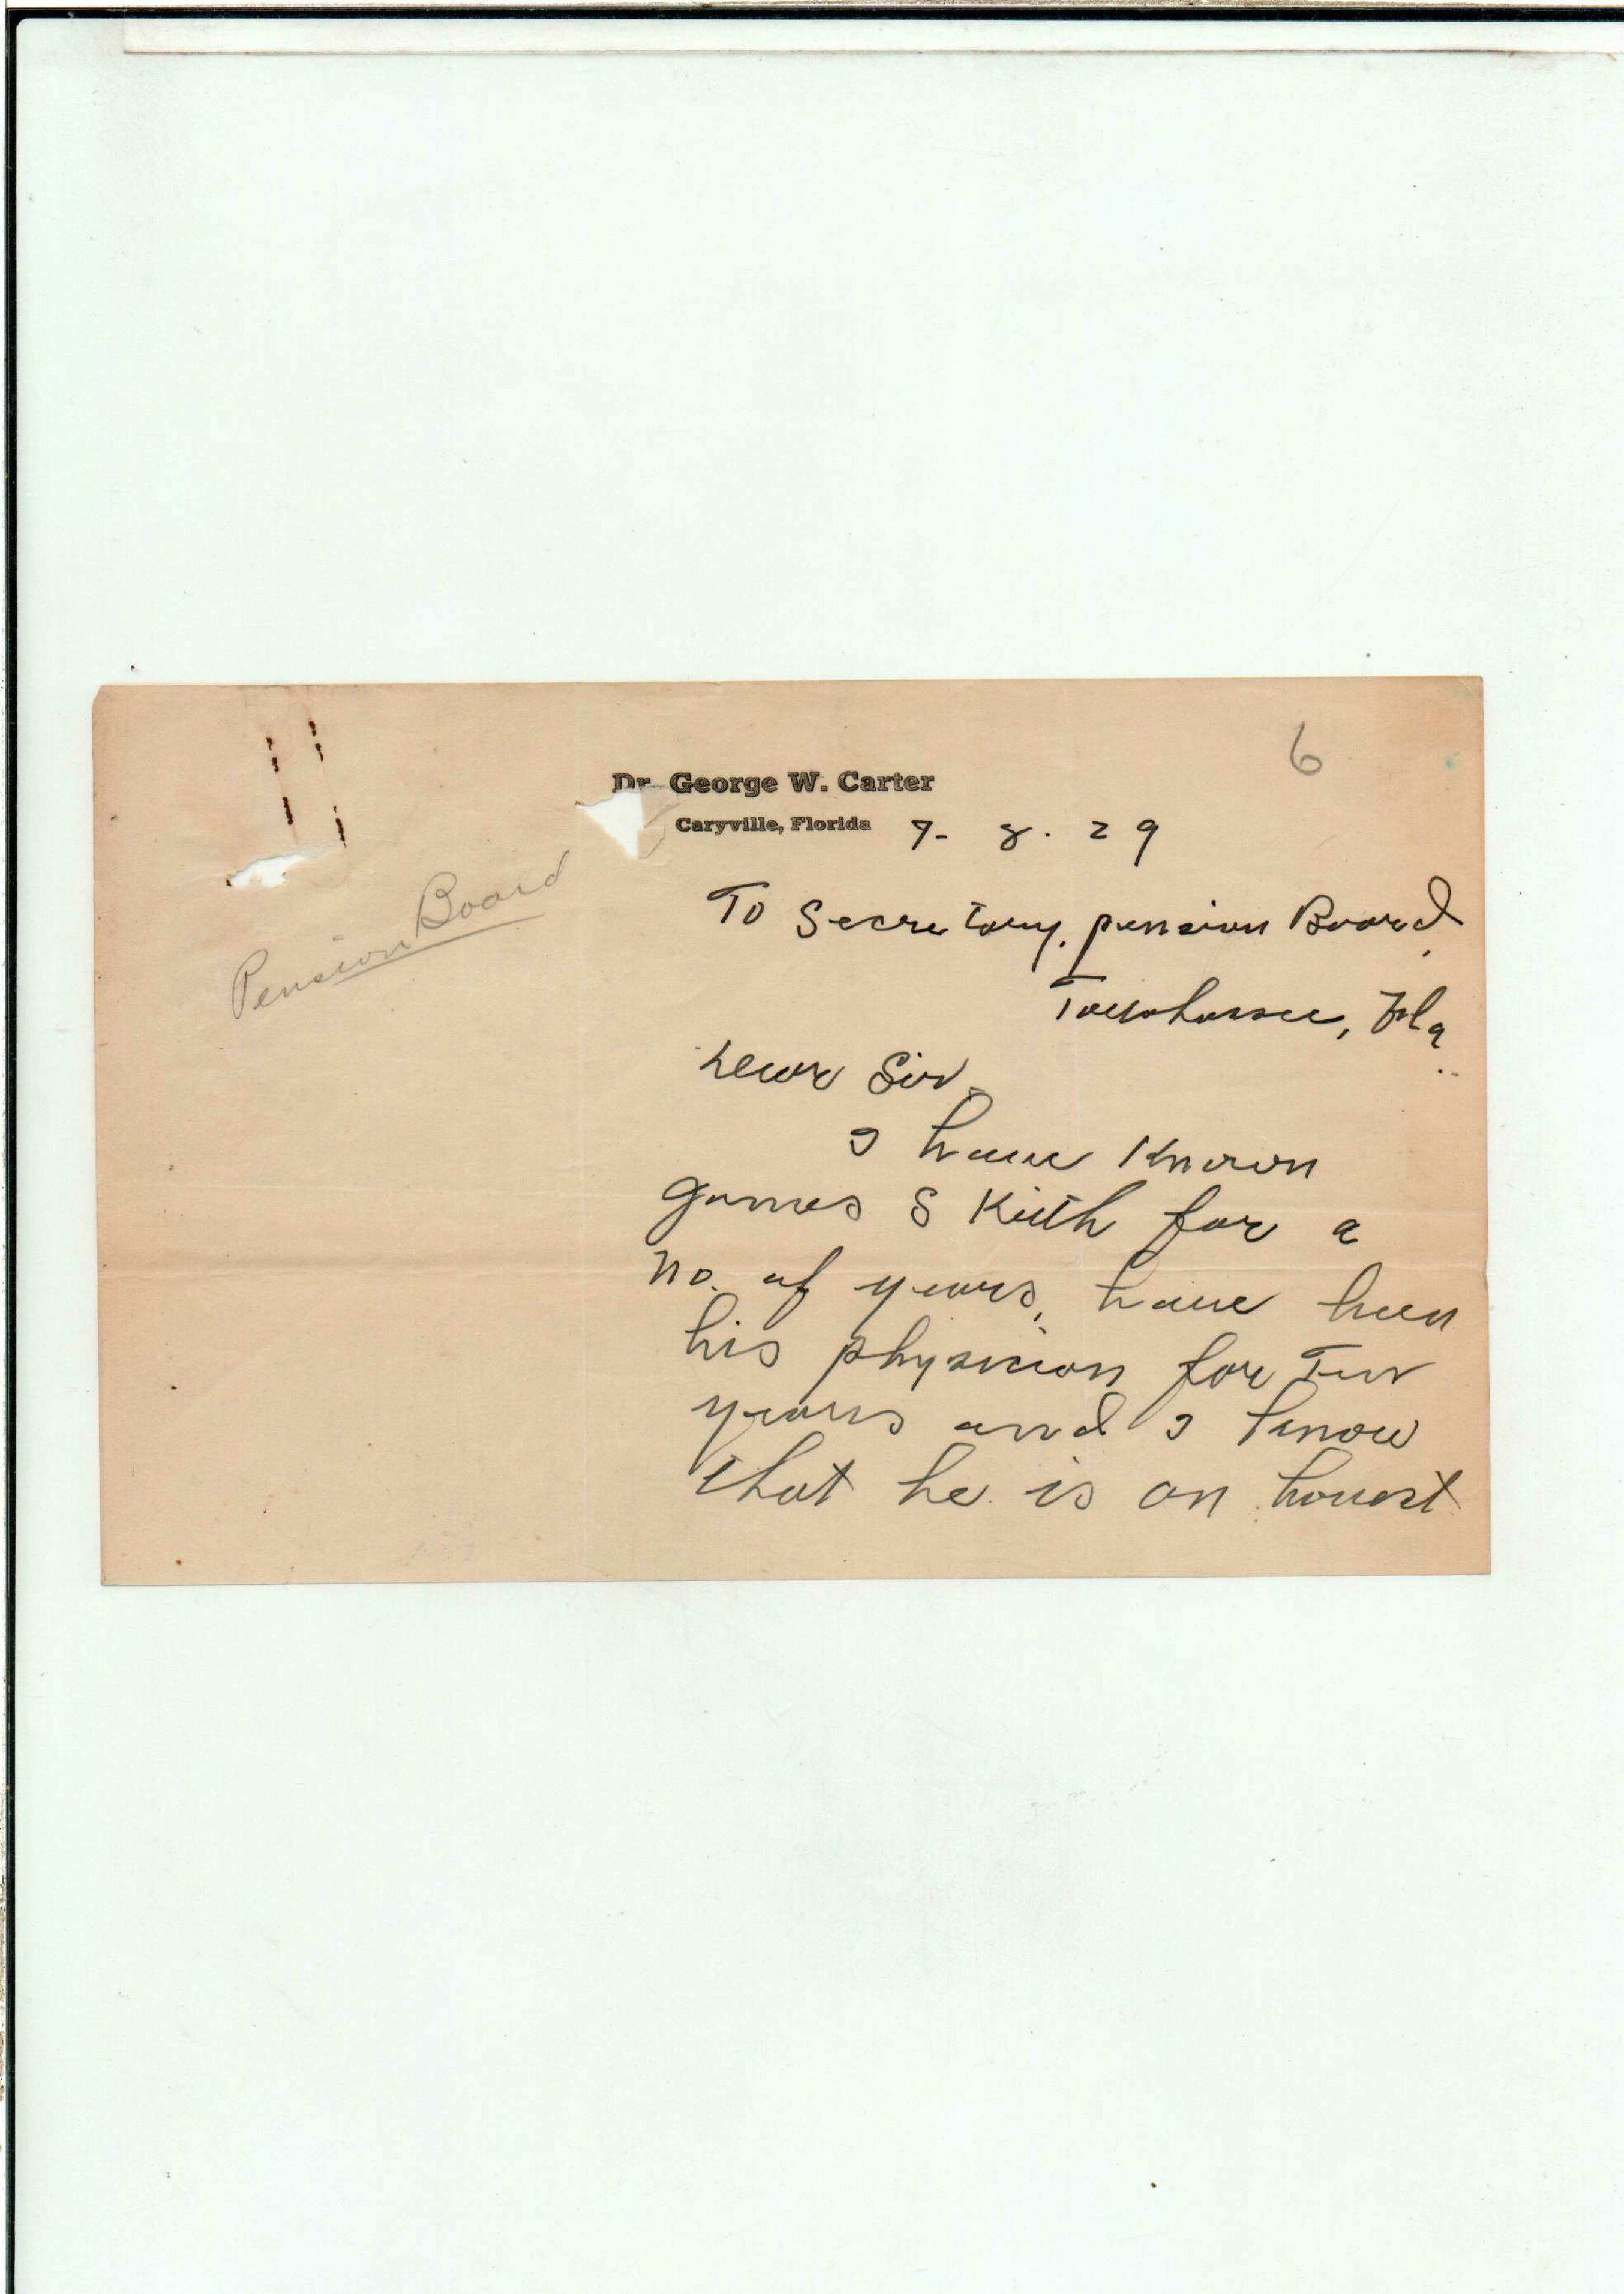 6
Dr. George W. Carter
Caryville, Florida 7- 8. 29
Pension Board
To Secretary, pension Board,
Tallahassee, Fla.
Dear Sir,
I have Known
James S Keith for a
No. of years, have been
his physician for Ten
years and I know
that he is an honest